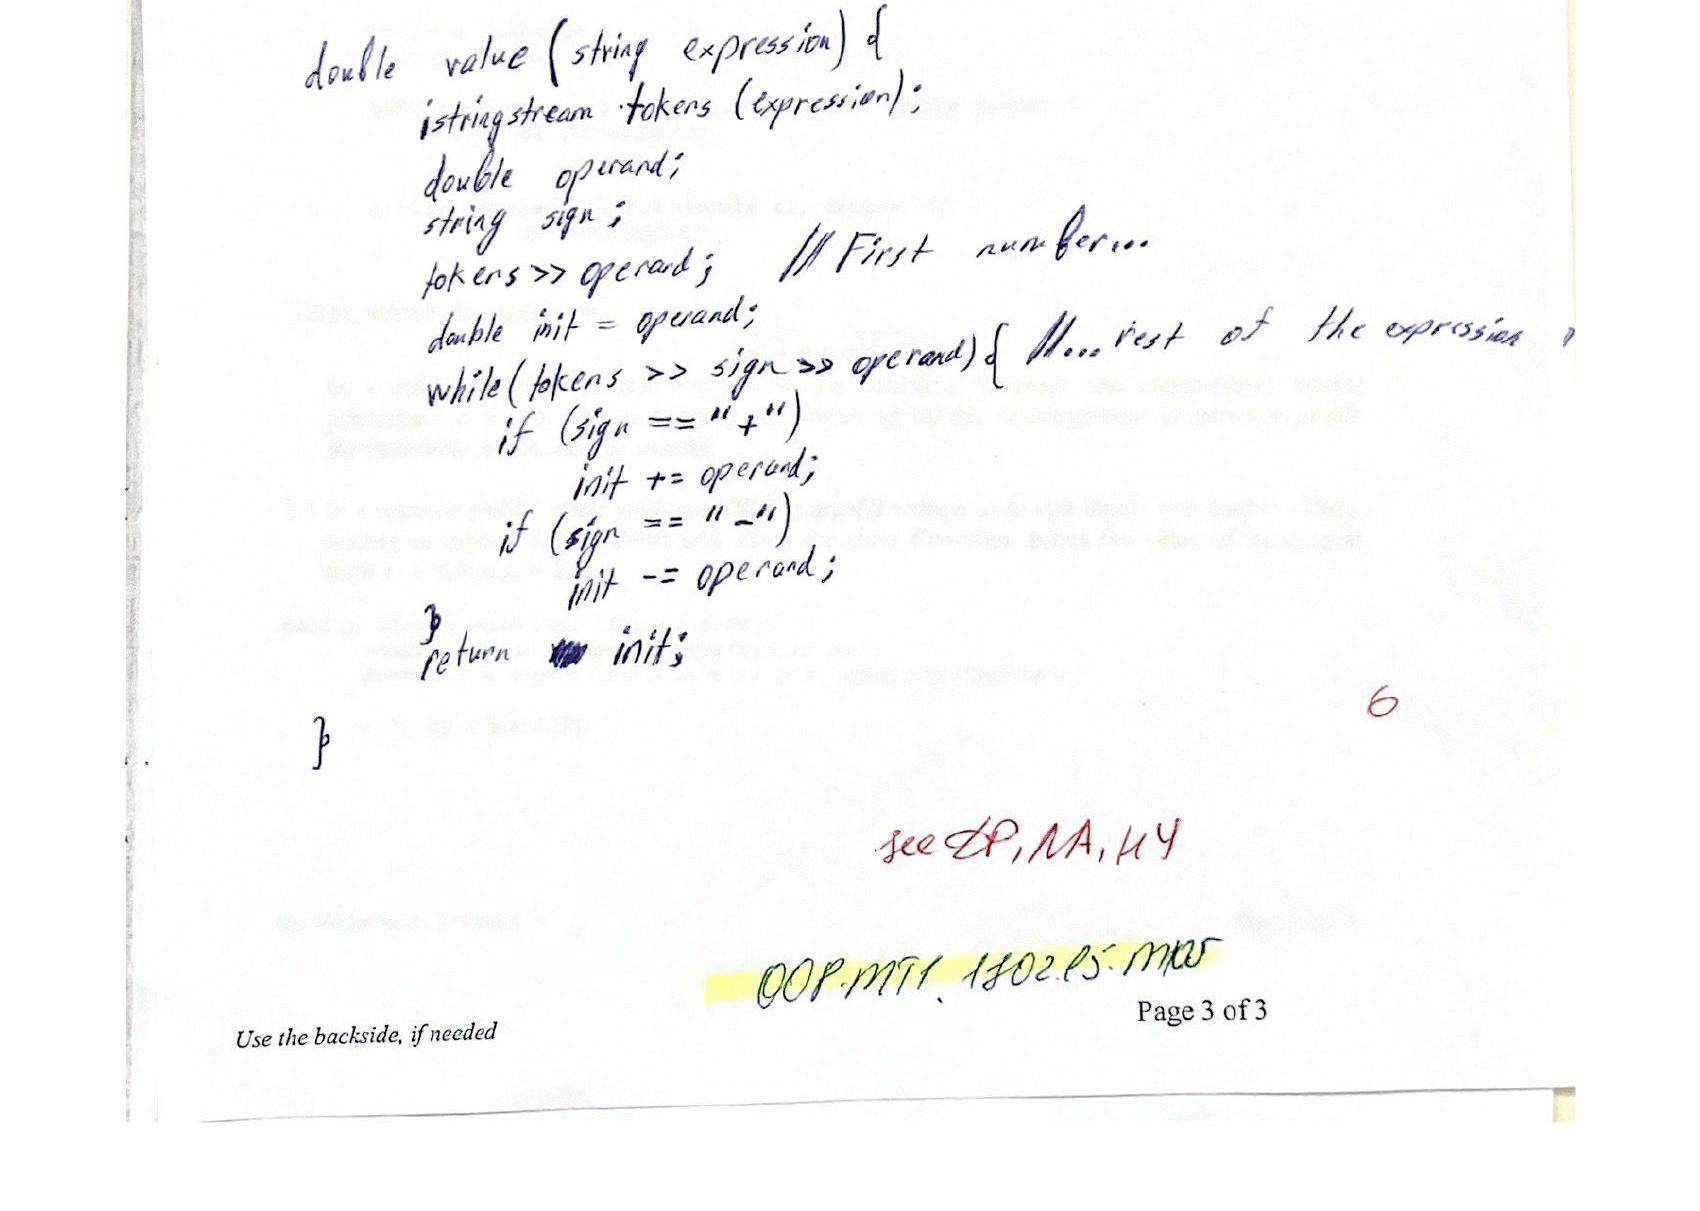 double value (string expression) {
istringstream tokens (expression);
double operand;
string sign;
tokens >> operand; // First number...
double init = operand;
while (tokens >> sign >> operand) { //... rest of the expression
if (sign == "+")
init += operand;
if (sign == "-")
init -= operand;
}
return init;
}
6
see
Use the backside, if needed
Page 3 of 3